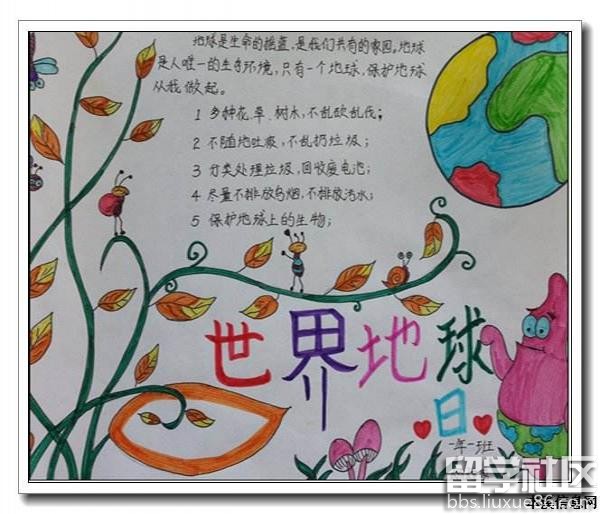 地球是生命的摇蓝,是我们共有的家园。地球
是人唯一的生命环境,只有一个地球,保护地球
从我做起。
1 多种花、草、树木,不乱砍乱伐;
2 不随地吐痰,不乱扔垃圾;
3 分类处理垃圾,回收废电池;
4 尽量不排放乌烟,不排放污水;
5 保护地球上的生物;
世界地球
日
一年一班
留学社区
bbs.liuxue86.com